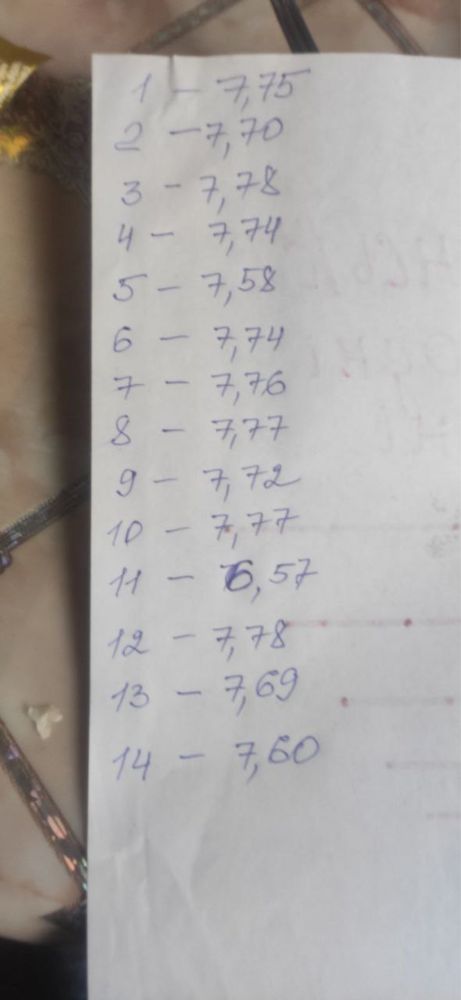 1 – 7,75
2 – 7,70
3 – 7,78
4 – 7,74
5 – 7,58
6 – 7,74
7 – 7,76
8 – 7,77
9 – 7,72
10 – 7,77
11 – 6,57
12 – 7,78
13 – 7,69
14 – 7,60